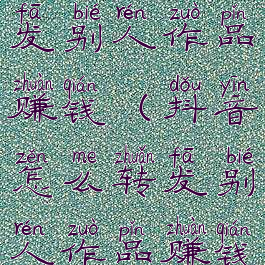 fā bié rén zuò pǐn
发别人作品
zhuàn qián dǒu yīn
赚钱(抖音
zěn me zhuǎn fā bié
怎么转发别
rén zuò pǐn zhuàn qián
人作品赚钱